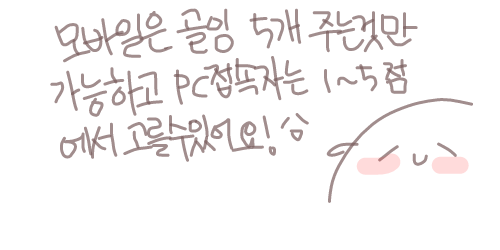 모바일은 골임 5개 주는것만
가능하고 PC접속자는 1~5점
에서 고를수있어요! ^^